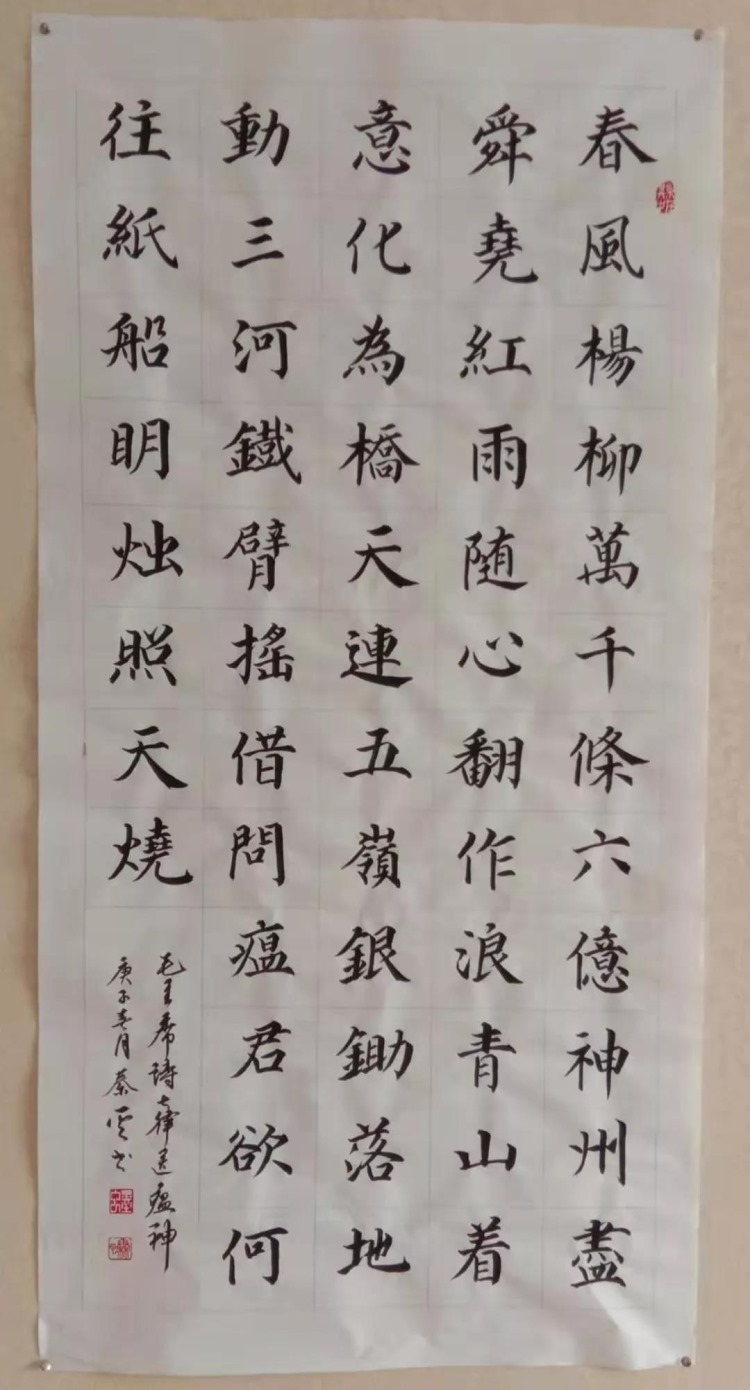 春風楊柳萬千條六億神州盡
舜堯紅雨随心翻作浪青山着
意化為橋天連五嶺銀鋤落地
動三河鐵臂搖借問瘟君欲何
往紙船明烛照天燒
毛主席詩七律送瘟神
庚子春月秦雲书